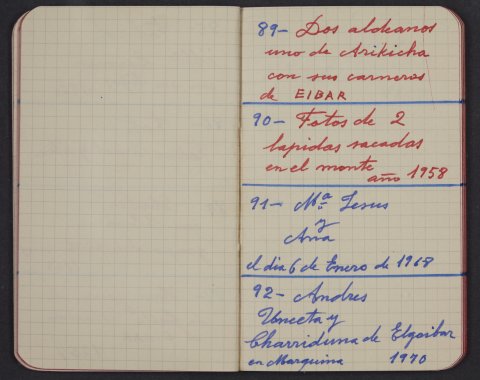 89- Dos aldeanos
uno de Arikicha
con sus carneros
de EIBAR
90- Fotos de 2
lapidas sacadas
en el monte
año 1958
91- Mª Jesus
y
Ana
el dia 6 de Enero de 1968
92- Andres
Unceta y
Charriduna de Elgoibar
en Marquina 1970